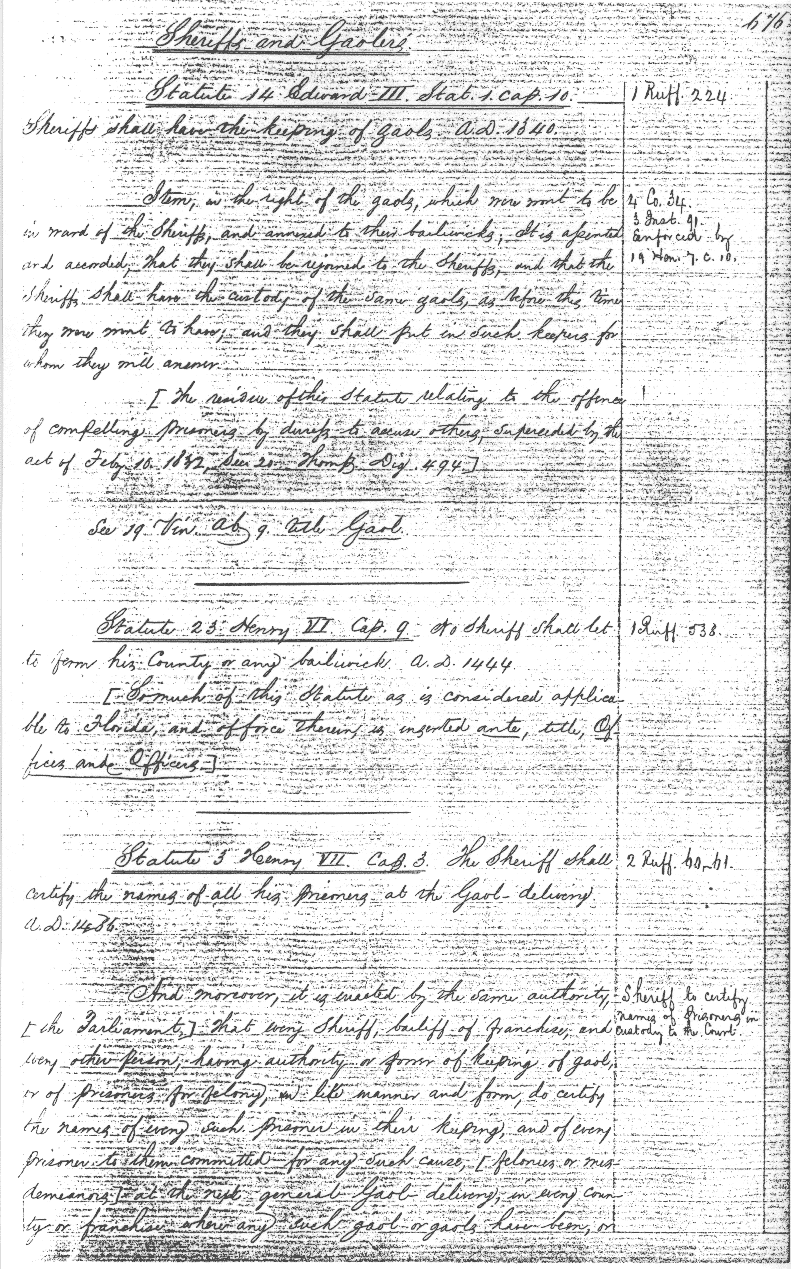 676
Sheriffs and Gaolers
Statute 14 Edward III. Stat. 1. Cap. 10.
1 Ruff. 224
Sheriffs shall have the keeping of gaols. A.D. 1340.
Item, in the right of the gaols, which were wont to be
in ward of the Sheriffs, and annexed to their bailiwicks; It is assented
and accorded, that they shall be rejoined to the Sheriffs, and that the
Sheriffs shall have the custody of the same gaols, as before this time
they were wont to have; and they shall put in such keepers for
whom they will answer.
4 Co. 34.
3 Inst. 91
Enforced by
19 Hen. 7. c. 10.
[The residue of this Statute relating to the offence
of compelling prisoners by duress to accuse others, superceded by the
act of Feby. 10. 1832, Sec 20. Thomp. Dig. 494.]
See 19 Vin. Ab. 9. title Gaol.
Statute 23 Henry VI Cap. 9. No Sheriff shall let
1 Ruff. 538.
to ferm his County or any bailiwick. A.D. 1444.
[So much of this Statute as is considered applica-
ble to Florida, and of force therein, is inserted ante, title, Of-
fices and Officers.]
Statute 3 Henry VII. Cap. 3. The Sheriff shall
2 Ruff. 60-61.
certify the names of all his prisoners at the Gaol-delivery
A.D. 1486.
And moreover, it is enacted by the same authority,
[the Parliament,] That every Sheriff, bailiff of franchise, and
every other person, having authority or power of keeping of gaol,
or of prisoners for felony, in like manner and form, do certify
the names of every such prisoner in their keeping, and of every
prisoner to them committed for any such cause, [felonies or mis-
demeanors] at the next general Gaol-delivery, in every coun-
ty or franchise where any such gaol or gaols have been, or
Sheriff to certify
names of prisoners in
custody to the Court.